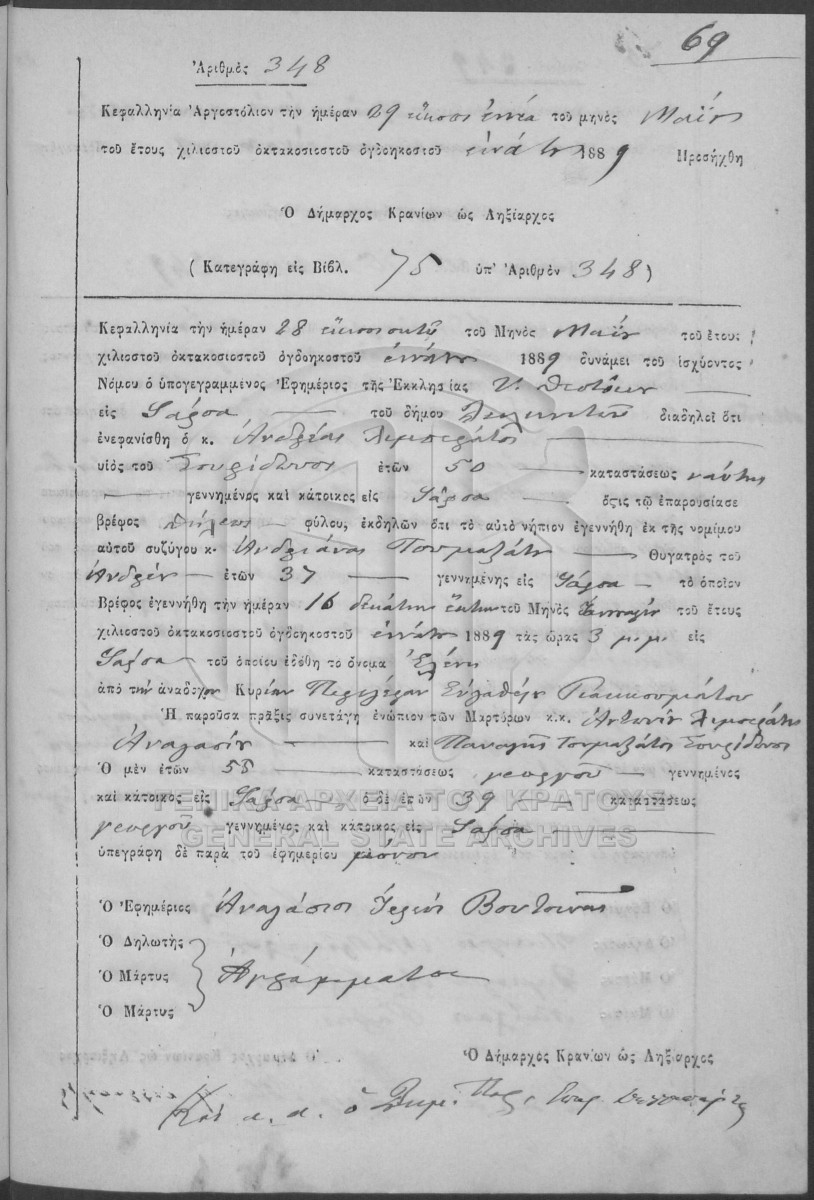 69
Ἀριθμὸς 348
Κεφαλληνία Ἀργοστόλιον τὴν ἡμέραν 29 εἴκοσι ἐννέα τοῦ μηνὸς Μαΐου
τοῦ ἔτους χιλιοστοῦ ὀκτακοσιοστοῦ ὀγδοηκοστοῦ ἐννάτου 1889 Προσήχθη
Ὁ Δήμαρχος Κρανίων ὡς Ληξίαρχος
(Κατεγράφη εἰς Βιβλ. 75 ὑπ' Ἀριθμὸν 348)
Κεφαλληνία τὴν ἡμέραν 28 εἴκοσι οκτὼ τοῦ Μηνὸς Μαΐου τοῦ ἔτους
χιλιοστοῦ ὀκτακοσιοστοῦ ὀγδοηκοστοῦ ἐννάτου 1889 δυνάμει τοῦ ἰσχύοντος
Νόμου ὁ ὑπογεγραμμένος Ἐφημέριος τῆς Ἐκκλησίας Υ. Θεοτόκου
εἰς τοῦ δήμου διαδηλοῖ ὅτι
ἐνεφανίσθη ὁ κ. Ἀνδρέας Λιμπεράτος
υἱὸς τοῦ Σπυρίδωνος ἐτῶν 50 καταστάσεως ναύτης
γεννημένος καὶ κάτοικος εἰς ὅςτις τῷ ἐπαρουσίασε
βρέφος θήλεος φύλου, ἐκδηλῶν ὅτι τὸ αὐτὸ νήπιον ἐγεννήθη ἐκ τῆς νομίμου
αὐτοῦ συζύγου κ. Ἀνδριάνας Τουμαζάτου Θυγατρὸς τοῦ
Ἀνδρέου ἐτῶν 37 γεννημένης εἰς τὸ ὁποῖον
Βρέφος ἐγεννήθη τὴν ἡμέραν 16 δεκάτην ἕκτην τοῦ Μηνὸς Ἰανουαρίου τοῦ ἔτους
χιλιοστοῦ ὀκτακοσιοστοῦ ὀγδοηκοστοῦ ἐννάτου 1889 τὰς ὥρας 3 μ.μ. εἰς
τοῦ ὁποίου ἐδόθη τὸ ὄνομα Ἑλένη
ἀπὸ τὴν ἀνάδοχον Κυρίαν
Ἡ παροῦσα πρᾶξις συνετάγη ἐνώπιον τῶν Μαρτύρων κ.κ. Ἀντωνίου Λιμπεράτου
Ἀναστασίου καὶ Παναγῆς Τουμαζάτου Σπυρίδωνος
Ὁ μὲν ἐτῶν 55 καταστάσεως γεωργοῦ γεννημένος
καὶ κάτοικος εἰς ὁ δὲ ἐτῶν 39 καταστάσεως
γεωργοῦ γεννημένος καὶ κάτοικος εἰς
ὑπεγράφη δὲ παρὰ τοῦ ἐφημερίου μόνου
Ὁ Ἐφημέριος Ἀναστάσιος Ἱερεὺς Βουτσινᾶς
Ὁ Δηλωτὴς
Ὁ Μάρτυς Ἀγράμματοι
Ὁ Μάρτυς
Ὁ Δήμαρχος Κρανίων ὡς Ληξίαρχος
ΓΕΝΙΚΑ ΑΡΧΕΙΑ ΤΟΥ ΚΡΑΤΟΥΣ
GENERAL STATE ARCHIVES